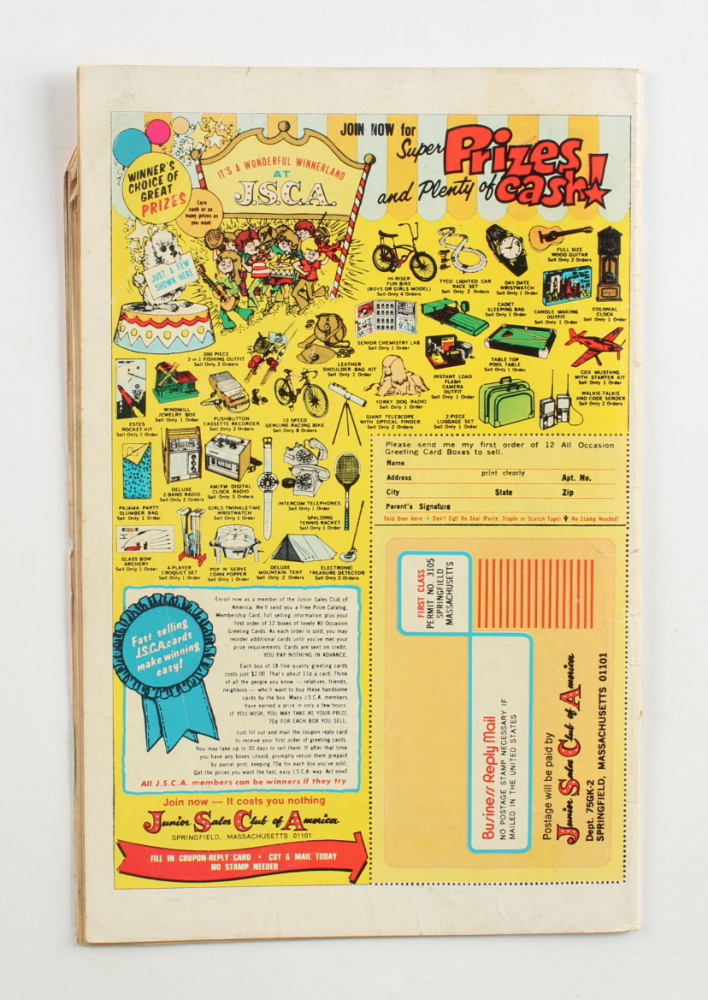 JOIN NOW for
Super Prizes
and Plenty of Cash!
WINNER'S
CHOICE OF
GREAT
PRIZES
Earn
cash or as
many prizes as
you want
IT'S A WONDERFUL WINNERLAND
AT
J.S.C.A.
JUST A FEW
SHOWN HERE
HI-RISER
FUN BIKE
(BOYS OR GIRLS MODEL)
Sell Only 4 Orders
TYCO LIGHTED CAR
RACE SET
Sell Only 3 Orders
DAY-DATE
WRISTWATCH
Sell Only 1 Order
FULL SIZE
WOOD GUITAR
Sell Only 2 Orders
CADET
SLEEPING BAG
Sell Only 1 Order
CANDLE MAKING
OUTFIT
Sell Only 1 Order
COLONIAL
CLOCK
Sell Only 1 Order
SENIOR CHEMISTRY LAB
Sell Only 1 Order
300 PIECE
3-in-1 FISHING OUTFIT
Sell Only 2 Orders
LEATHER
SHOULDER BAG KIT
Sell Only 1 Order
YORKY DOG RADIO
Sell Only 1 Order
INSTANT LOAD
FLASH
CAMERA
OUTFIT
Sell Only 1 Order
TABLE TOP
POOL TABLE
Sell Only 1 Order
COX MUSTANG
WITH STARTER KIT
Sell Only 1 Order
ESTES
ROCKET KIT
Sell Only 1 Order
WINDMILL
JEWELRY BOX
Sell Only 1 Order
PUSHBUTTON
CASSETTE RECORDER
Sell Only 3 Orders
10 SPEED
GENUINE RACING BIKE
Sell Only 8 Orders
GIANT TELESCOPE
WITH OPTICAL FINDER
Sell Only 2 Orders
2-PIECE
LUGGAGE SET
Sell Only 1 Order
WALKIE TALKIE
AND CODE SENDER
Sell Only 2 Orders
PAJAMA PARTY
SLUMBER BAG
Sell Only 1 Order
DELUXE
2-BAND RADIO
Sell Only 2 Orders
AM/FM DIGITAL
CLOCK RADIO
Sell Only 3 Orders
GIRLS TWINKLETIME
WRISTWATCH
Sell Only 1 Order
INTERCOM TELEPHONES
Sell Only 1 Order
SPALDING
TENNIS RACKET
Sell Only 1 Order
GLASS BOW
ARCHERY
Sell Only 1 Order
4-PLAYER
CROQUET SET
Sell Only 1 Order
POP 'N' SERVE
CORN POPPER
Sell Only 1 Order
DELUXE
MOUNTAIN TENT
Sell Only 2 Orders
ELECTRONIC
TREASURE DETECTOR
Sell Only 2 Orders
Please send me my first order of 12 All Occasion
Greeting Card Boxes to sell.
Name
print clearly
Address Apt. No.
City State Zip
Parent's Signature
Fold Over Here Don't Cut! Do Seal (Paste, Staple or Scotch Tape) No Stamp Needed!
Fast selling
J.S.C.A. cards
make winning
easy!
Enroll now as a member of the Junior Sales Club of
America. We'll send you a Free Prize Catalog,
Membership Card, full selling information plus your
first order of 12 boxes of lovely All Occasion
Greeting Cards. As each order is sold, you may
reorder additional cards until you've met your
prize requirements. Cards are sent on credit.
YOU PAY NOTHING IN ADVANCE.
Each box of 18 fine quality greeting cards
costs just $2.00. That's about 11¢ a card. Think
of all the people you know — relatives, friends,
neighbors — who'll want to buy these handsome
cards by the box. Many J.S.C.A. members
have earned a prize in only a few hours.
IF YOU WISH, YOU MAY TAKE AS YOUR PRIZE
70¢ FOR EACH BOX YOU SELL.
Just fill out and mail the coupon reply card
to receive your first order of greeting cards.
You may take up to 30 days to sell them. If after that time
you have any boxes unsold, promptly return them prepaid
by parcel post, keeping 70¢ for each box you've sold.
Get the prizes you want the fast, easy J.S.C.A. way. Act now!
All J.S.C.A. members can be winners if they try
Join now — It costs you nothing
Junior Sales Club of America
SPRINGFIELD, MASSACHUSETTS 01101
FILL IN COUPON-REPLY CARD • CUT & MAIL TODAY
NO STAMP NEEDED
FIRST CLASS
PERMIT NO. 3105
SPRINGFIELD
MASSACHUSETTS
Business Reply Mail
NO POSTAGE STAMP NECESSARY IF
MAILED IN THE UNITED STATES
Postage will be paid by
Junior Sales Club of America
Dept. 75GK-2
SPRINGFIELD, MASSACHUSETTS 01101